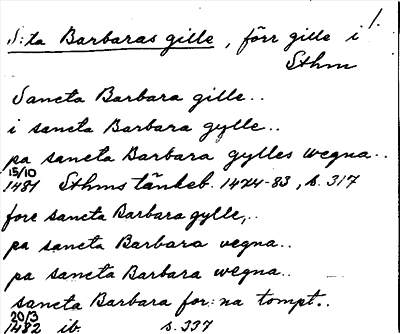 1.
S:ta Barbaras gille, förr gille i
Sthm
Sancta Barbara gille..
i sancta Barbara gylle..
pa sancta Barbara gylles wegna..
15/10
1481 Sthms tänkeb. 1474-83, s. 317
fore sancta Barbara gylle,..
pa sancta Barbara vegna..
pa sancta Barbara wegna..
sancta Barbara for:na tompt..
20/3
1482 ib. s. 337